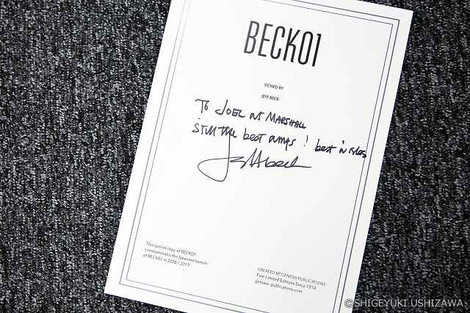 BECK01
SIGNED BY
JEFF BECK
TO JOEL at MARSHALL
STILL THE best amps !
Jeff Beck
This special copy of BECK01
of BECK01 in 2016 / 2017
CREATED BY GENESIS PUBLICATIONS
Fine Limited Editions Since 1974
genesis-publications.com
©SHIGEYUKI USHIZAWA